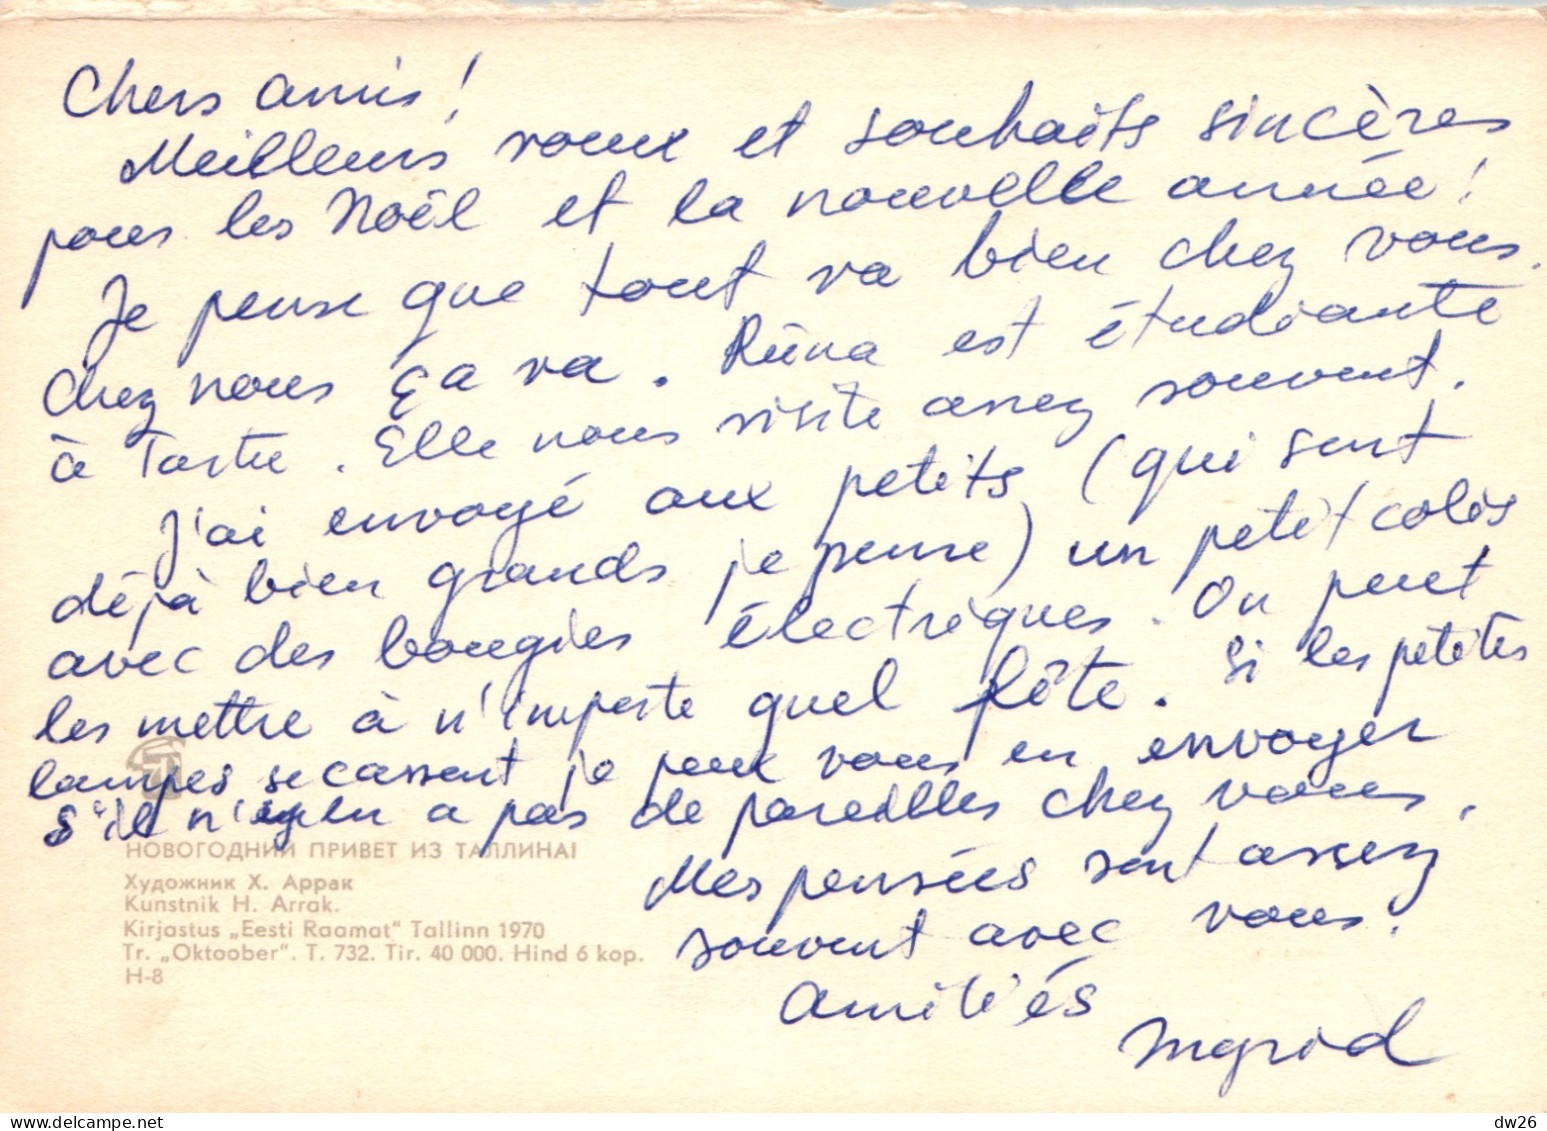 Chers amis!
Meilleurs voeux et souhaits sincères
pour les Noël et la nouvelle année!
Je pense que tout va bien chez vous.
Chez nous ça va. Riina est étudiante
à Tartu. Elle nous visite assez souvent.
J'ai envoyé aux petits (qui sont
déjà bien grands je pense) un petit colis
avec des bougies électriques. On peut
les mettre à n'importe quel fête. Si les petites
lampes se cassent je peux vous en envoyer
S'il n'y en a pas de pareilles chez vous.
Mes pensées sont assez
souvent avec vous!
Amitiés
Ingrid
НОВОГОДНИЙ ПРИВЕТ ИЗ ТАЛЛИНА!
Художник Х. Аррак
Kunstnik H. Arrak.
Kirjastus „Eesti Raamat" Tallinn 1970
Tr. „Oktoober". T. 732. Tir. 40 000. Hind 6 kop.
H-8
delcampe.net
dw26